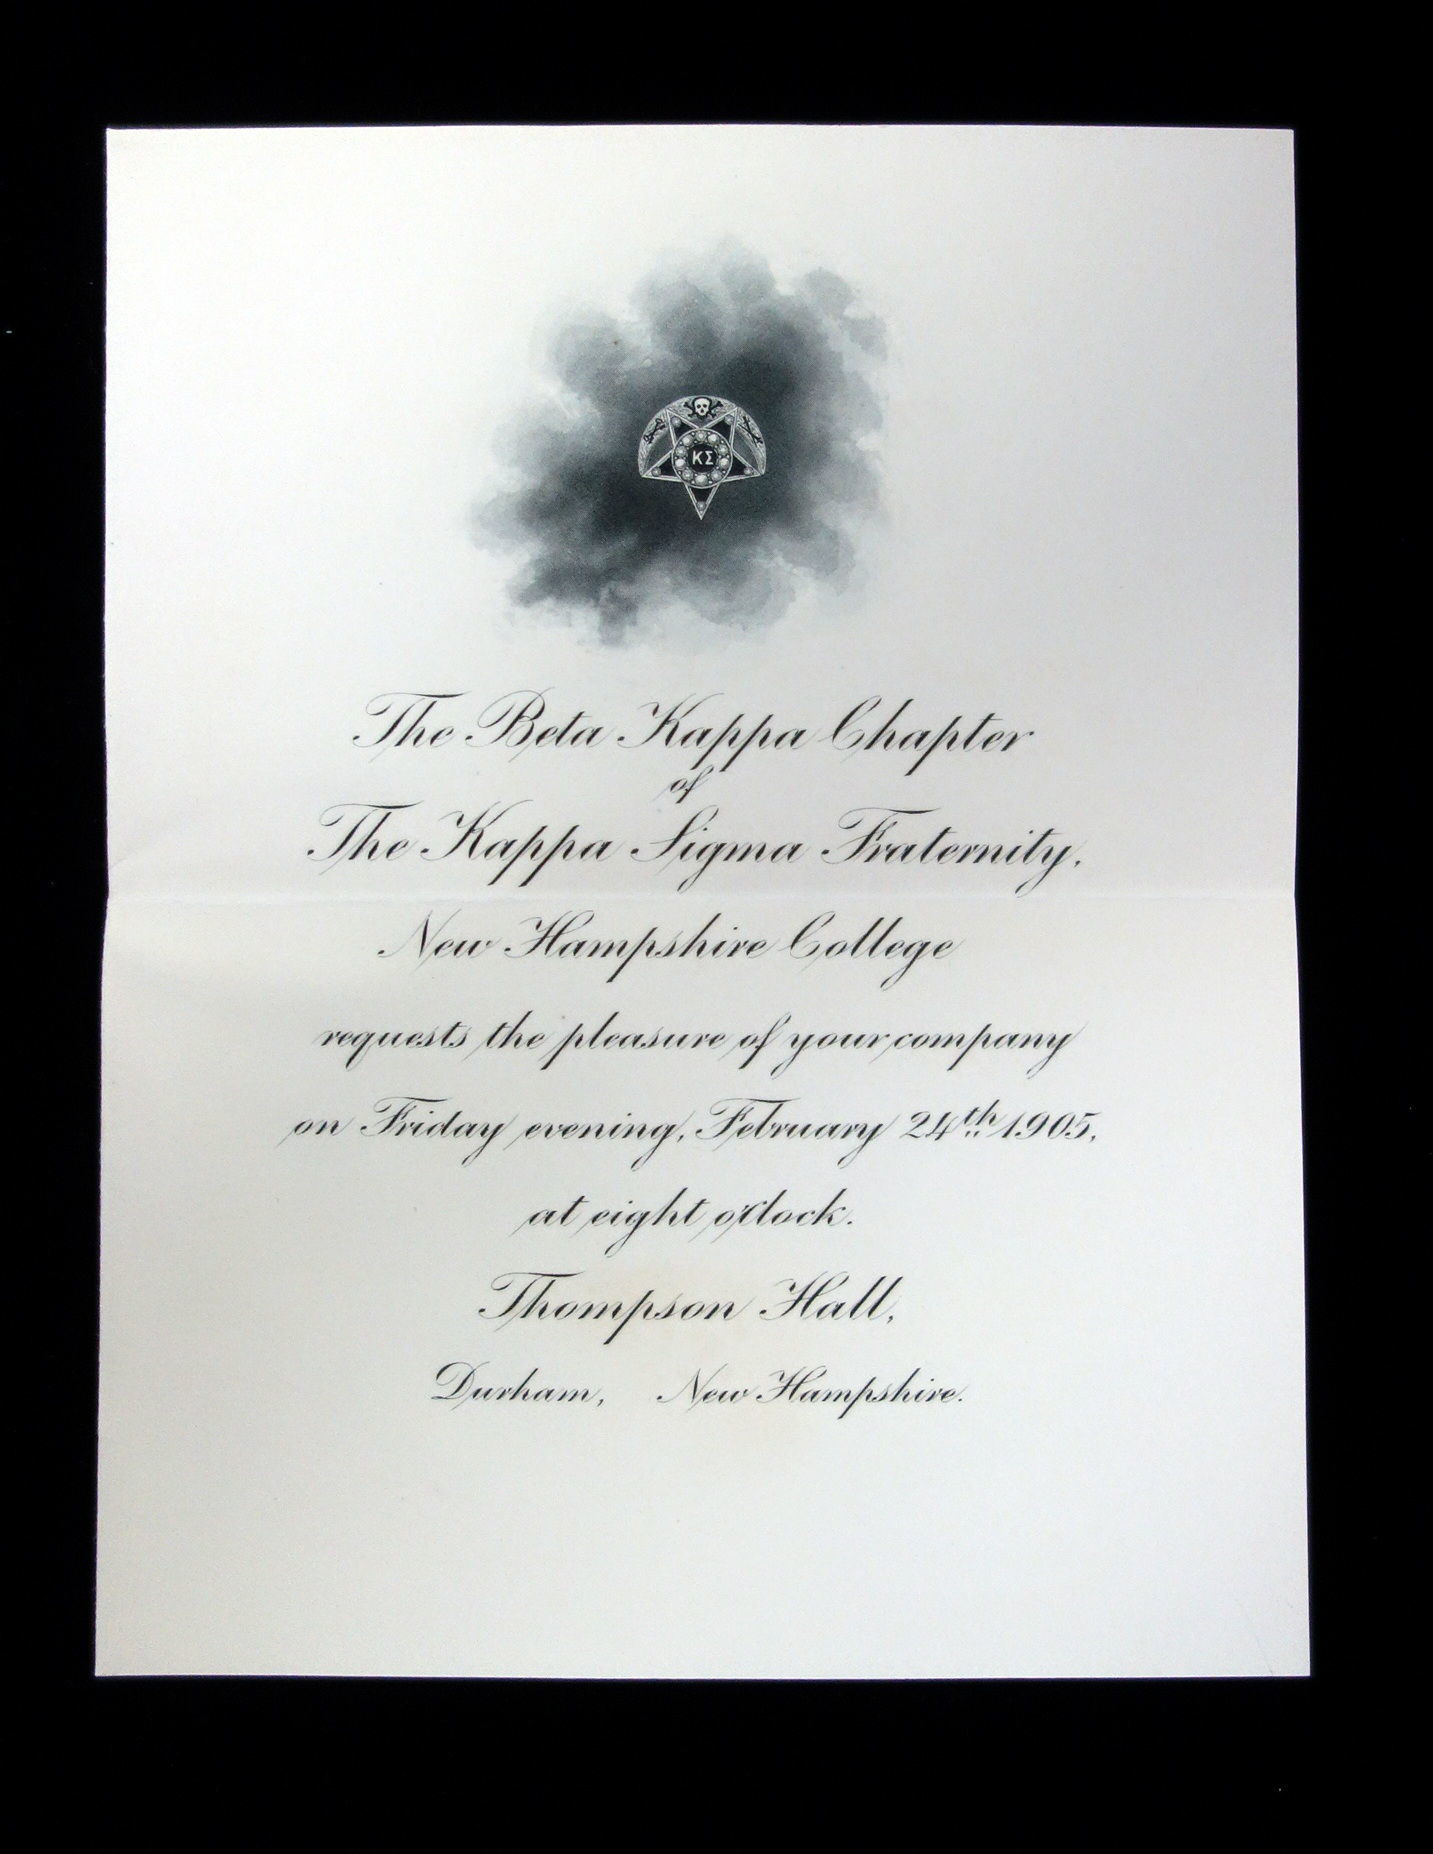 ΚΣ
The Beta Kappa Chapter
of
The Kappa Sigma Fraternity.
New Hampshire College
requests the pleasure of your company
on Friday evening, February 24th 1905,
at eight o'clock.
Thompson Hall,
Durham, New Hampshire.